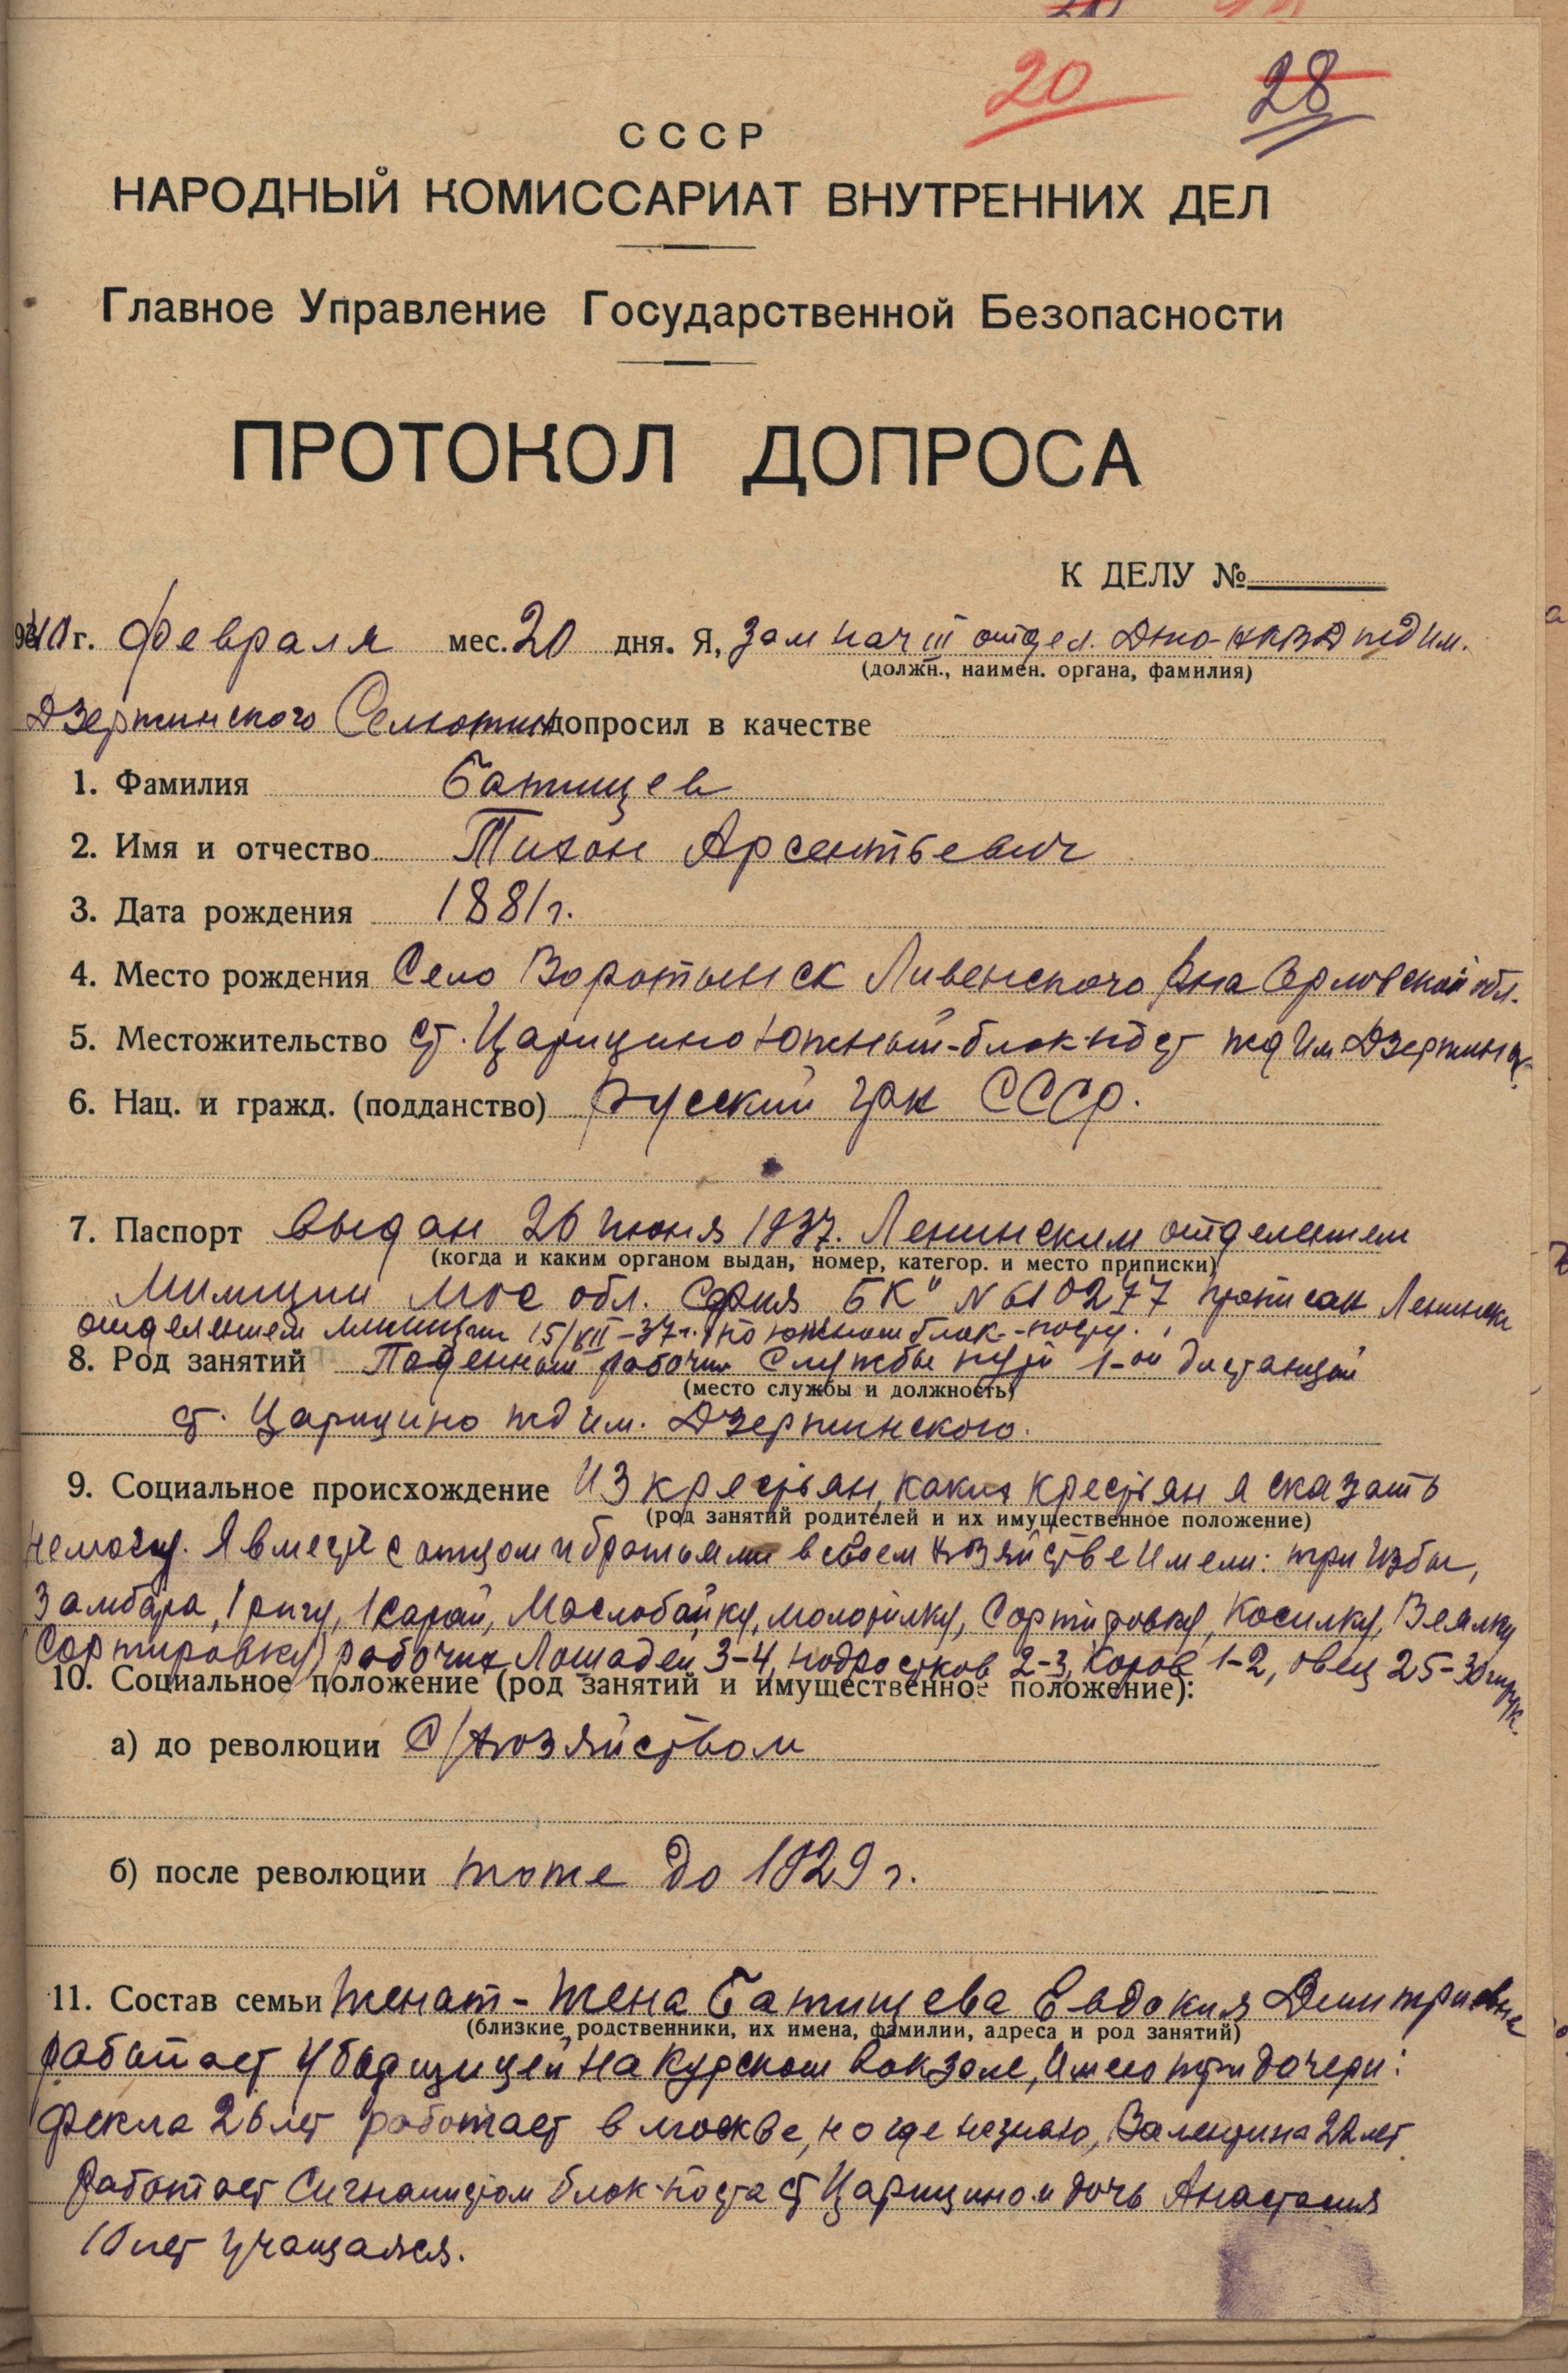 20 28
СССР
НАРОДНЫЙ КОМИССАРИАТ ВНУТРЕННИХ ДЕЛ
Главное Управление Государственной Безопасности
ПРОТОКОЛ ДОПРОСА
К ДЕЛУ №
40 г. февраля мес. 20 дня. Я, Зам нач III отдел. ДТО-НКВД жд им.
(должн., наимен. органа, фамилия)
Дзержинского допросил в качестве
1. Фамилия Батищев
2. Имя и отчество Тихон Арсентьевич
3. Дата рождения 1881 г.
4. Место рождения Село Воротынск Ливенского р-на Орловской обл.
5. Местожительство ст. Царицино Южный-блок-пост жд им Дзержинск
6. Нац. и гражд. (подданство) Русский гр-н СССР.
7. Паспорт выдан 26 июня 1937. Ленинским отделением
(когда и каким органом выдан, номер, категор. и место приписки)
Милиции Мос обл. Серия БК" № 610277 прописан Ленинск
отделением милиции 15/VII-37 г. по южном блок-посту.
8. Род занятий Паденный рабочий Службы пути 1-ой дистанций
(место службы и должность)
ст. Царицино жд им. Дзержинского.
9. Социальное происхождение Из крестьян, каких крестьян я сказать
(род занятий родителей и их имущественное положение)
немогу. Я вместе с отцом и братьями в своем хозяйстве имели: три избы,
3 амбара, 1 ригу, 1 сарай, Маслобайку, молотилку, Сортировку, Косилку, Веялку
(Сортировку) рабочих Лошадей 3-4, подростков 2-3, Коров 1-2, овец 25-30 штук.
10. Социальное положение (род занятий и имущественное положение):
а) до революции С/хозяйством
б) после революции тоже до 1929 г.
11. Состав семьи Женат - жена Батищева Евдокия Дмитриевна
(близкие родственники, их имена, фамилии, адреса и род занятий)
работает уборщицей на Курском вокзале, имею три дочери:
Фекла 26 лет работает в москве, но где не знаю, Валентина 22 лет
Работает Сигналистом блок-поста ст Царицино и дочь Анастасия
10 лет учащаяся.